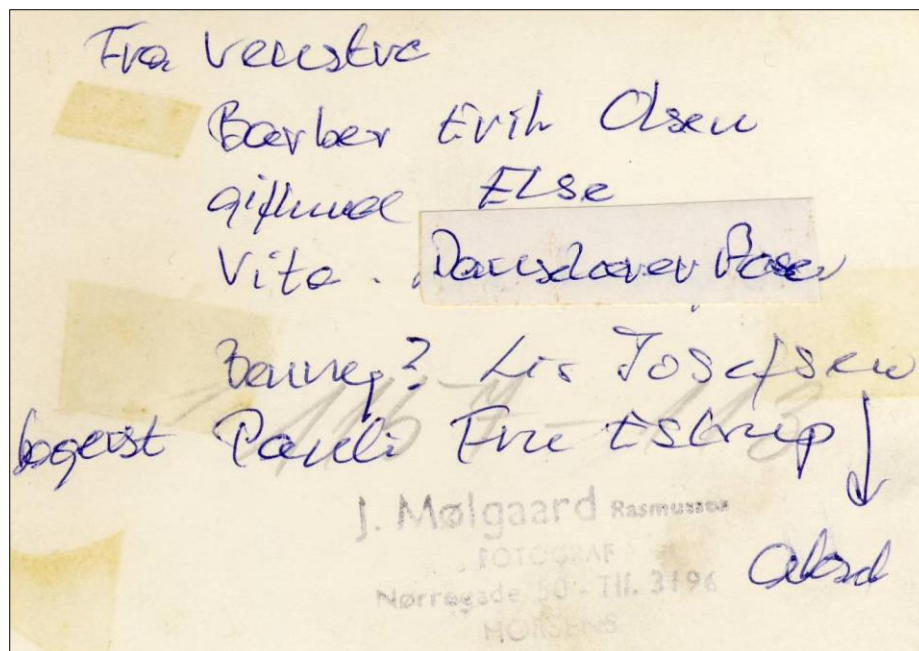 Fra Venstre
Barber Erik Olsen
gift med Else
Vita ..
Lis Josefsen
bagerst Pauli Fru Estrup
J. Mølgaard Rasmussen
FOTOGRAF
Nørregade 50 - Tlf. 3196
HORSENS